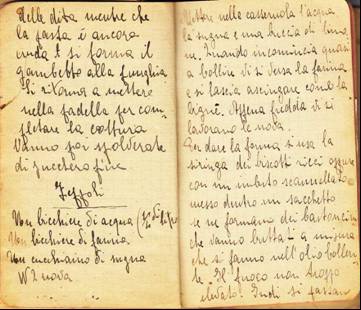 delle dita mentre che
la pasta è ancora
cruda e si forma il
gambetto alla funghia
Si ritorna a mettere
nella padella per com
pletare la cottura
Vanno poi spolverate
di zucchero fine
Zeppoli
Un bicchiere di acqua
Un bicchiere di farina
Un cucchiaino di sugna
N° 2 uova
Mettere nella casseruola l'acqua
la sugna e una buccia di limo
ne. Quando incomincia quasi
a bollire vi si versa la farina
e si lascia asciugare come la
bignè. Appena fredda vi si
lavorano le uova.
Per dare la forma si usa la
siringa dei biscotti ricci oppure
con un imbuto scannellato
messo dentro un sacchetto
se ne formano dei bastoncini
che vanno buttati a misura
che si fanno nell'olio bollen
te. Il fuoco non troppo
elevato. Indi si passan